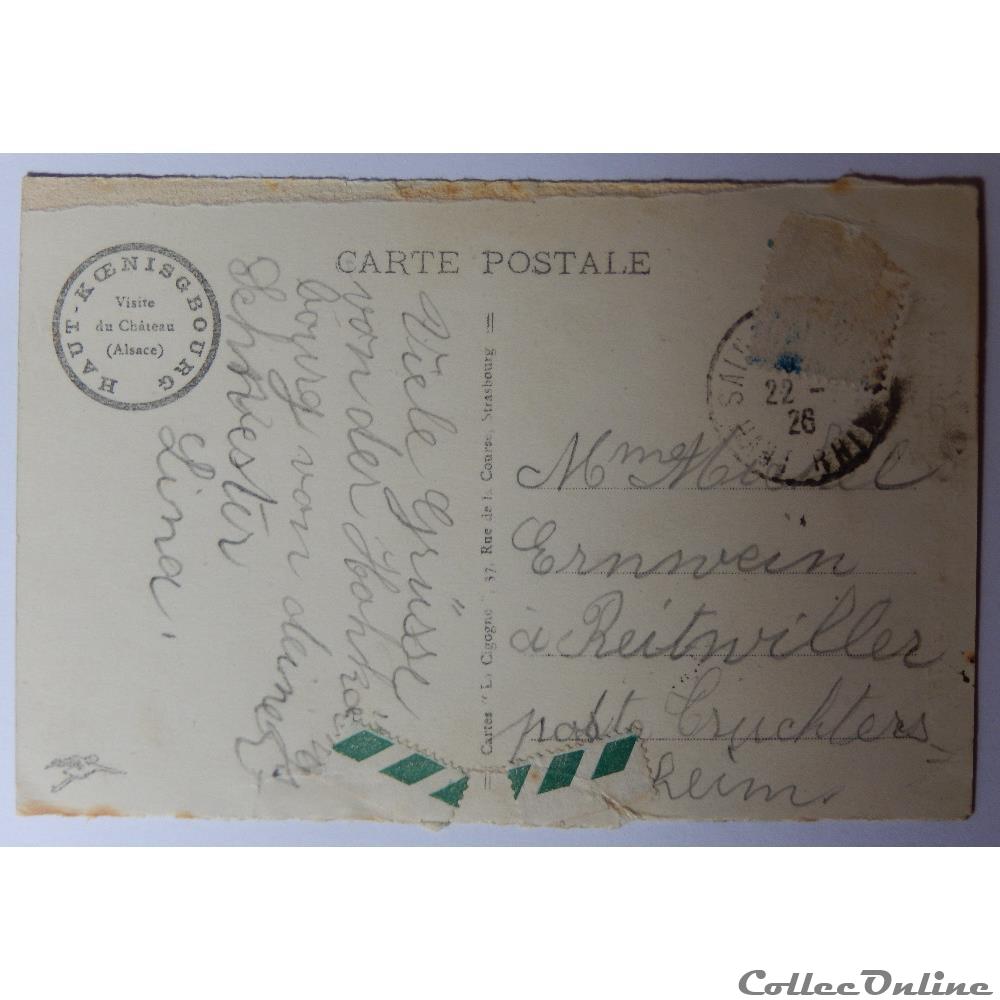 HAUT-KŒNISGBOURG
Visite
du Château
(Alsace)
CARTE POSTALE
Viele Grüsse
von der Hohkönigs
bourg von deiner
Schwester
Lina.
Cartes "La Cigogne", 37, Rue de la Course, Strasbourg
22 -
26
RHIN
Mme Michel
Ernwein
à Reitwiller
poste Truchters-
heim.
CollecOnline